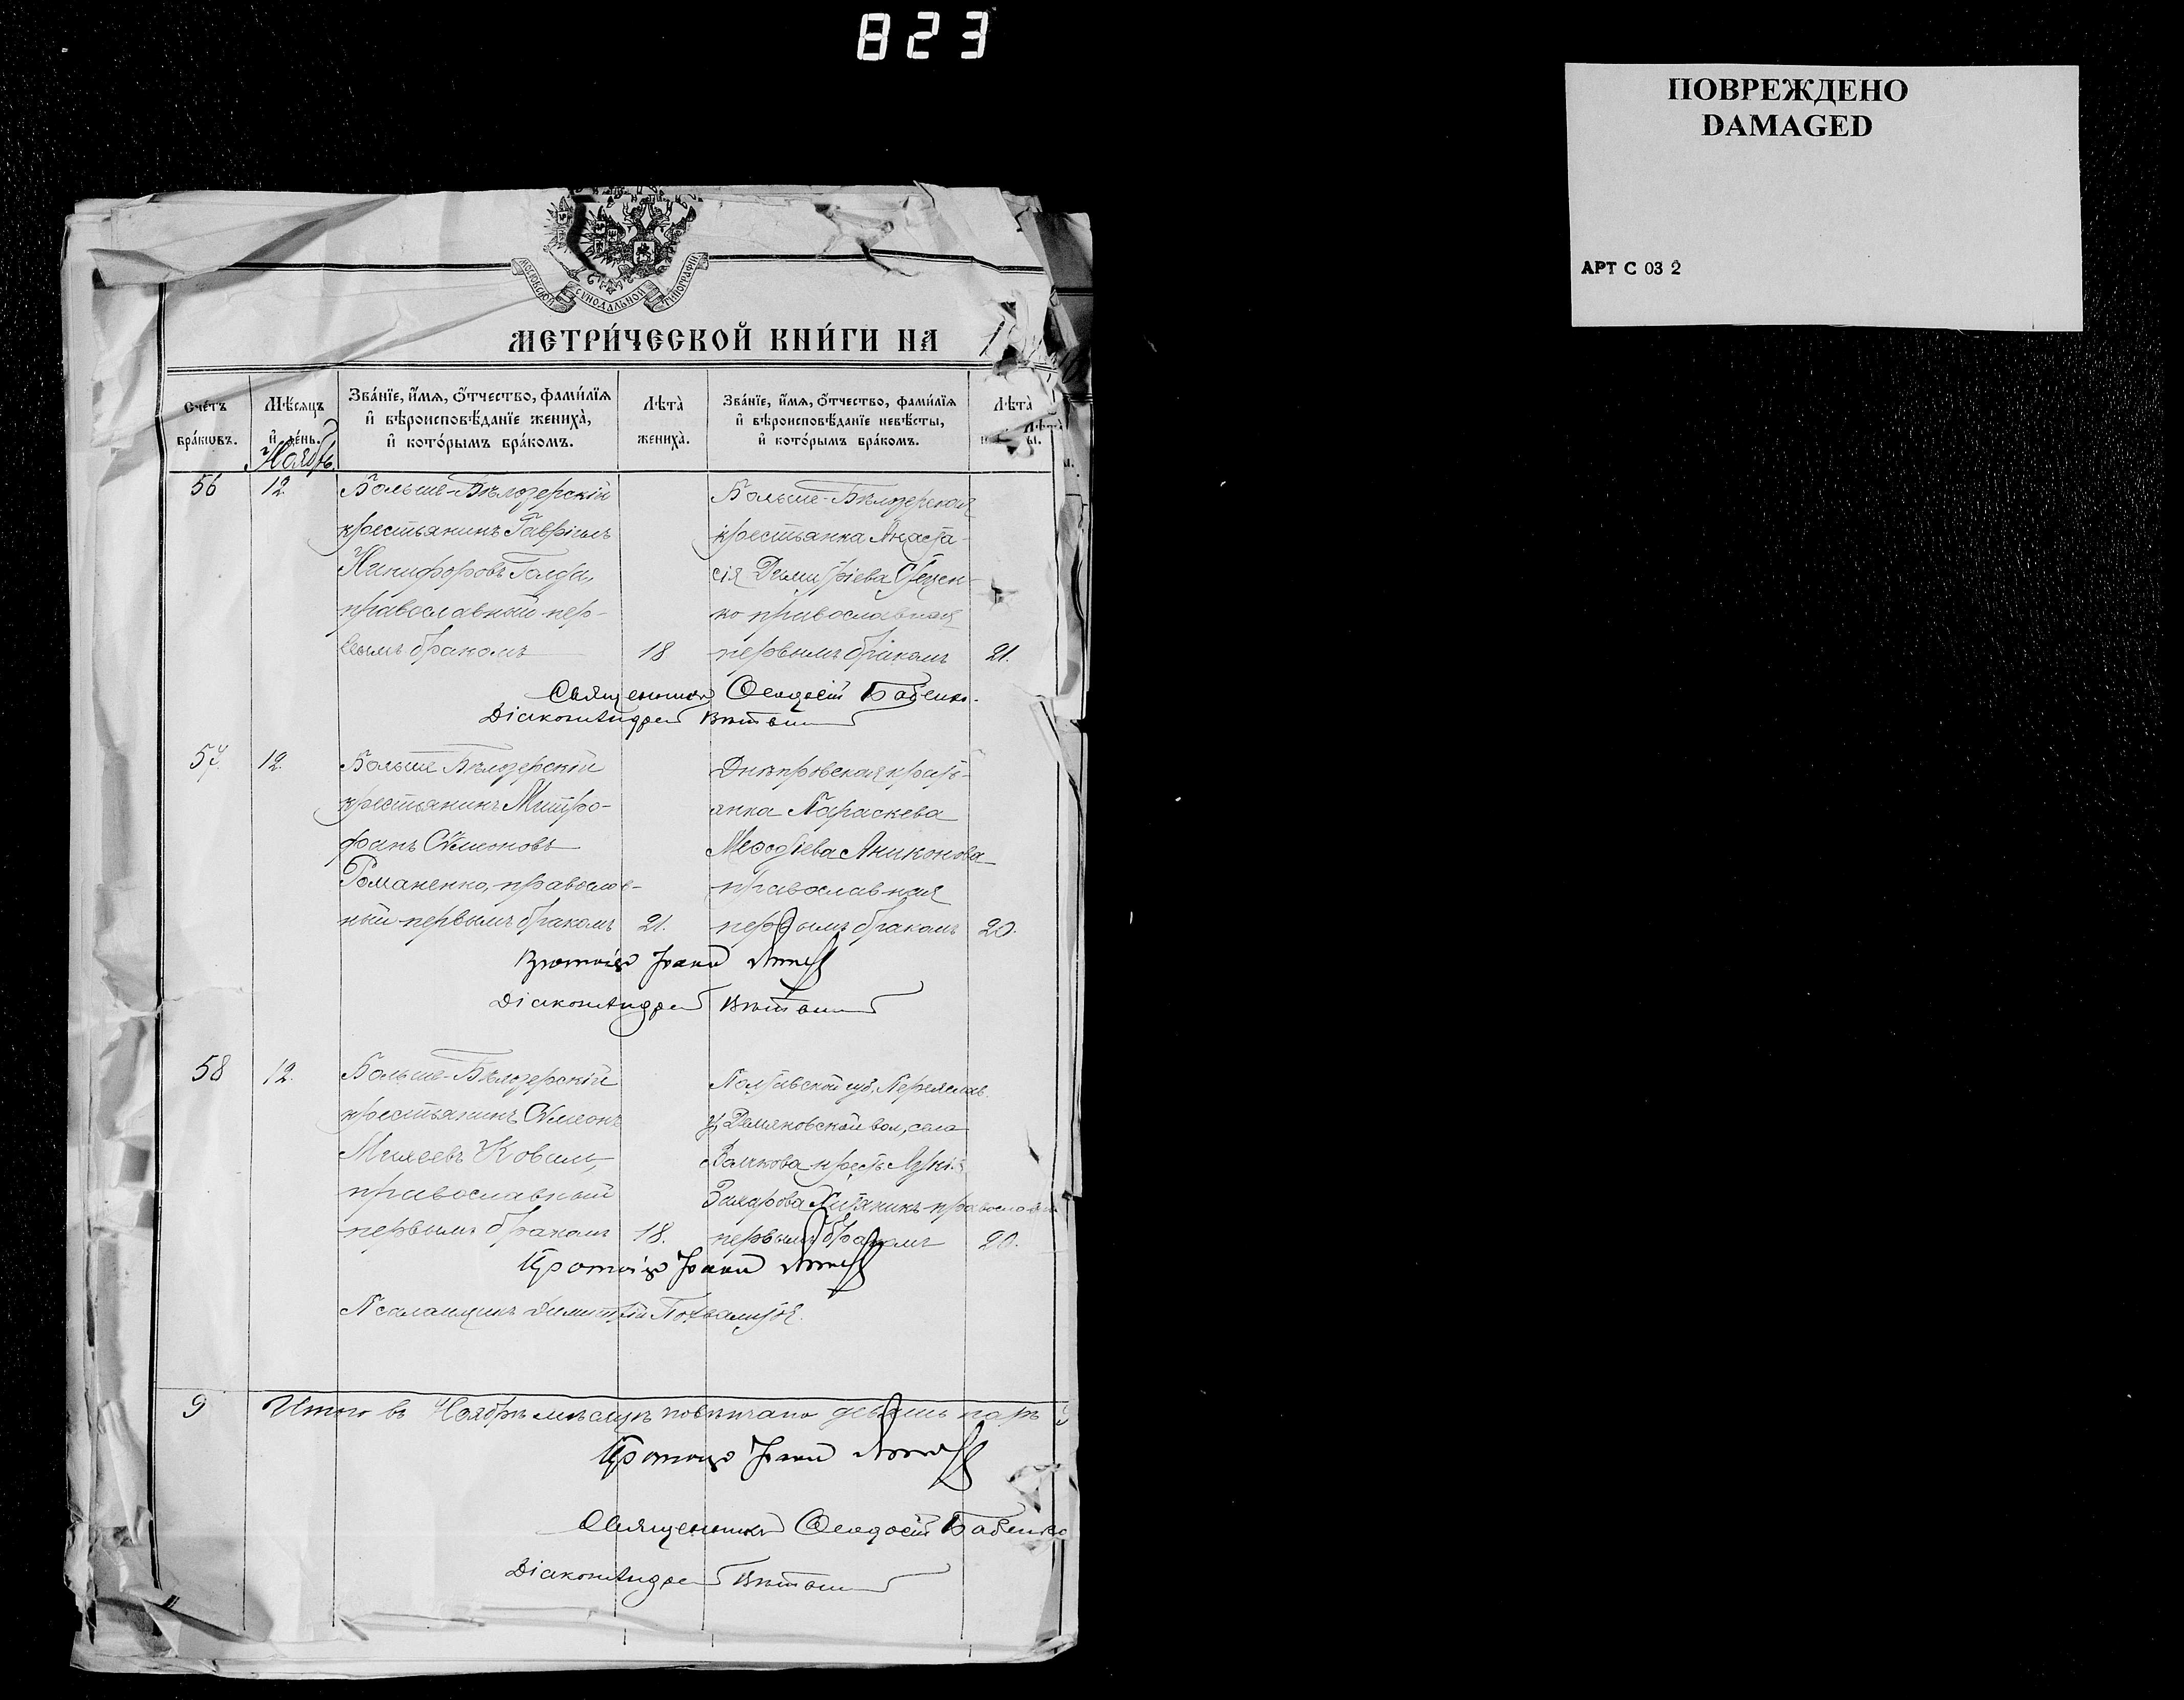 823
ПОВРЕЖДЕНО
DAMAGED
АРТ С 03 2
МОСКОВСКОЙ СУНОДАЛЬНОЙ ТИПОГРАФІИ
МЕТРИ́ЧЕСКОЙ КНИ́ГИ НА 1
Сче́тъ бра́кѡвъ.
Мѣ́сяцъ и҆ де́нь.
Зва́нїе, и҆́мѧ, ѻ҆́тчество, фами́лїѧ и҆ вѣроисповѣ́данїе жениха̀, и҆ кото́рымъ бра́комъ.
Лѣта̀ жениха̀.
Зва́нїе, и҆́мѧ, ѻ҆́тчество, фами́лїѧ и҆ вѣроисповѣ́данїе невѣ́сты, и҆ кото́рымъ бра́комъ.
Лѣта̀
Ноябрь.
56 12. Больше-Бѣлозерскій
крестьянинъ Гавріилъ
Никифоровъ
православный пер-
вымъ бракомъ 18
Больше-Бѣлозерская
крестьянка Анаста-
сія Димитріева Стецен-
ко православная
первымъ бракомъ 21.
Священникъ Ѳеодосій Бабенко.
Діаконъ Андрей
57. 12. Больше Бѣлозерскій
крестьянинъ Митро-
фанъ Симеоновъ
Романенко, православ-
ный первымъ бракомъ 21.
Днѣпровская крест-
янка Параскева
Меѳодіева Аниконова
православная
первымъ бракомъ 20.
Протоіер Іоаннъ
Діаконъ Андрей
58 12. Больше-Бѣлозерскій
крестьянинъ Симеонъ
Моисеевъ Коваль,
православный
первымъ бракомъ 18.
Полтавской губ, Переяслав.
у, Демянковской вол, села
крест.
Захарова православная
первымъ бракомъ 20.
Протоіер Іоаннъ
Псаломщикъ Димитрій
9 Итого въ Ноябрѣ мѣсяцѣ повѣнчано девять паръ 9
Протоіер Іоаннъ
Священникъ Ѳеодосій Бабенко
Діаконъ Андрей